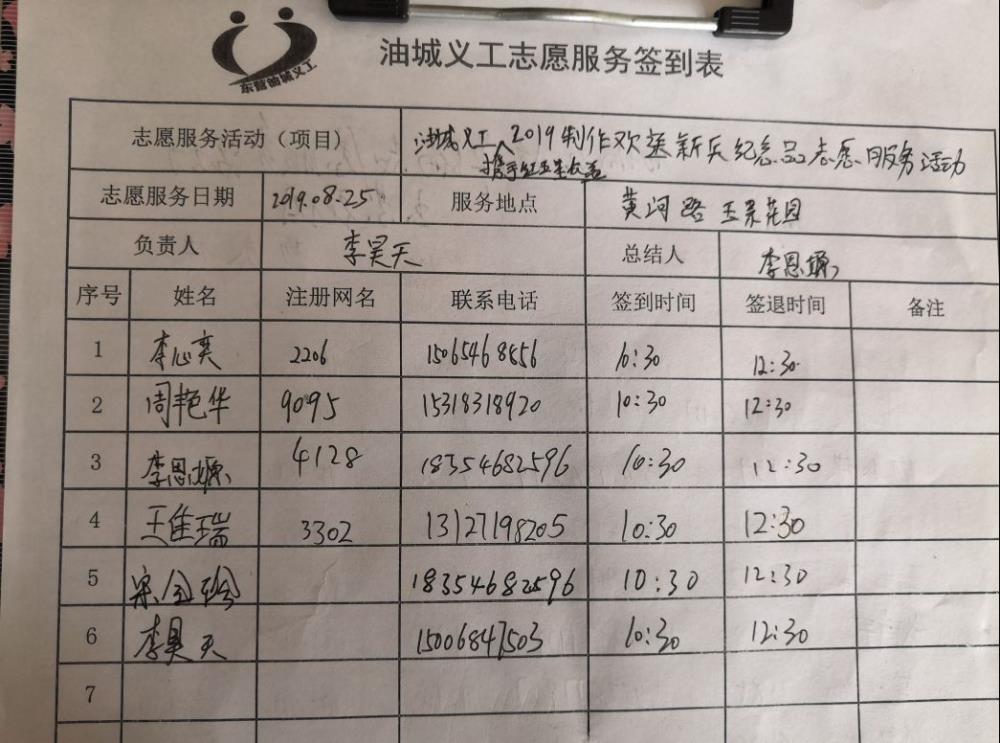 东营油城义工
油城义工志愿服务签到表
志愿服务活动（项目） 油城义工2019制作欢送新兵纪念品志愿服务活动
携手红五星公益
志愿服务日期 2019.08.25 服务地点 黄河路
负责人 李昊天 总结人 李恩
序号 姓名 注册网名 联系电话 签到时间 签退时间 备注
1 李心奕 2206 15065468456 10:30 12:30
2 周艳华 9095 15318318920 10:30 12:30
3 李恩 4128 18354682596 10:30 12:30
4 王佳瑞 3302 13127198205 10:30 12:30
5 宋 18354682596 10:30 12:30
6 李昊天 15006847503 10:30 12:30
7